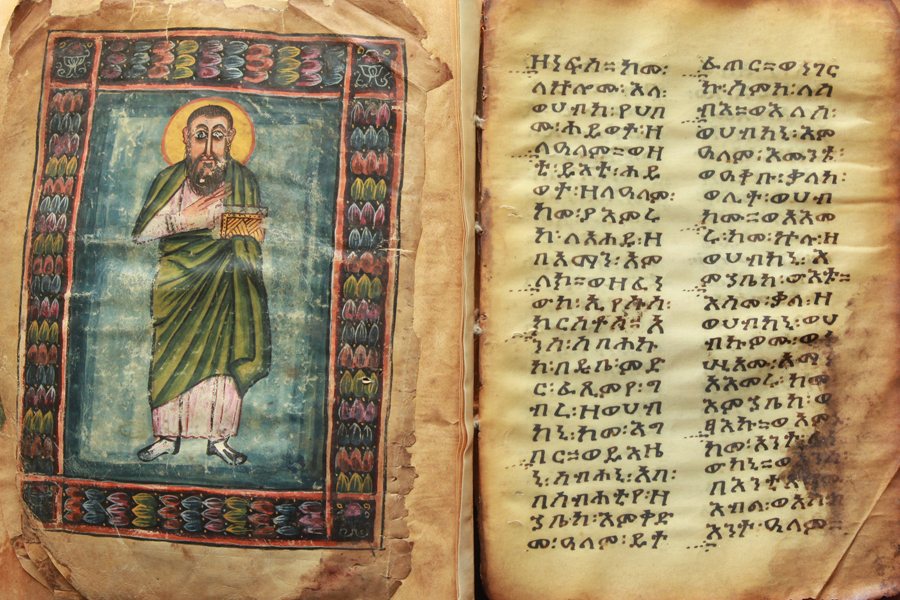 ዘነፍስ። ከመ፡
ለኵሎሙ፡ እለ፡
ወሀብከ፡ የሀበ
ሙ፡ ሕይወተ፡ ዘ
ለዓለም። ወዛ
ቲ፡ ይእቲ፡ ሕይ
ወት፡ ዘለዓለም፡
ከመ፡ ያእምሩ
ከ፡ ለአሐዱ፡ ዘ
በአማን፡ አም
ላክ። ወዘፈነ
ውከ፡ ኢየሱስ፡
ክርስቶስ። አ
ንሰ፡ ሰባሕኩ
ከ፡ በዲበ፡ ምድ
ር፡ ፈጺምየ፡ ግ
ብረ፡ ዘወሀብ
ከኒ፡ ከመ፡ እግ
በር። ወይእዜ
ኒ፡ ሰብሐኒ፡ አባ፡
በስብሐቲየ፡ ዘ
ኀቤከ፡ እምቅድ
መ፡ ዓለም፡ ይት
ፈጠር። ወነገር
ኩ፡ ስምከ፡ ለሰ
ብእ። ወእለ፡
ወሀብከኒ፡ እም
ዓለም፡ እሙንቱ፡
ወዓቀቡ፡ ቃለከ፡
ወሊተ፡ ወሀብ
ከሙ። ወአእመ
ሩ፡ ከመ፡ ኵሉ፡ ዘ
ወሀብከኒ፡ እ
ምኀቤከ፡ ውእቱ።
እስመ፡ ቃለ፡ ዘ
ወሀብከኒ፡ ወሀ
ብኩዎሙ፡
አእመሩ፡ ከመ፡
እምኀቤከ፡ ወ
ፃእኩ። ወአም
ከመ፡ አንተ፡
ዓለም።